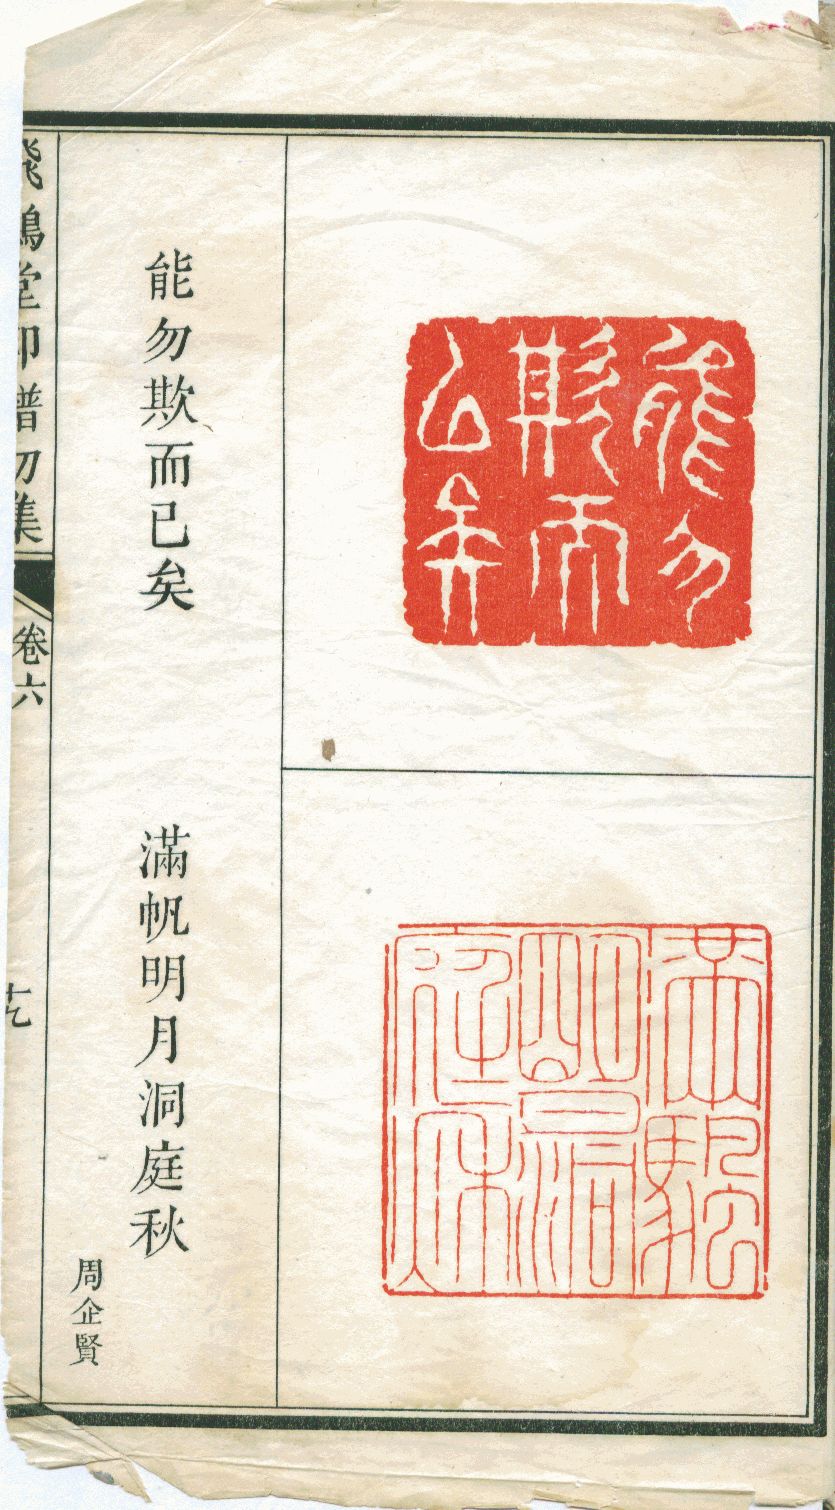 能勿
欺而
已矣
滿帆
明月洞
庭秋
能勿欺而已矣
滿帆明月洞庭秋
周企賢
飛鴻堂印譜初集
卷六